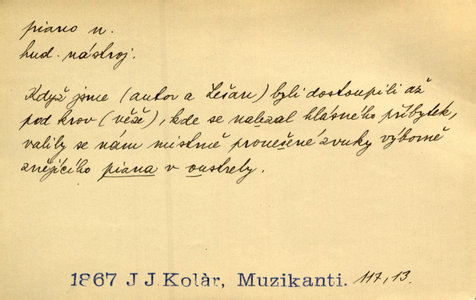 piano n.
hud. nástroj.
Když jsme (autor a Lešan) byli dostoupili až
pod krov (věže), kde se nalezal hlásného příbytek,
valily se nám místně pronešené zvuky výborně
znějícího piana v oustrety.
1867 J J Kolàr, Muzikanti. 117, 13.